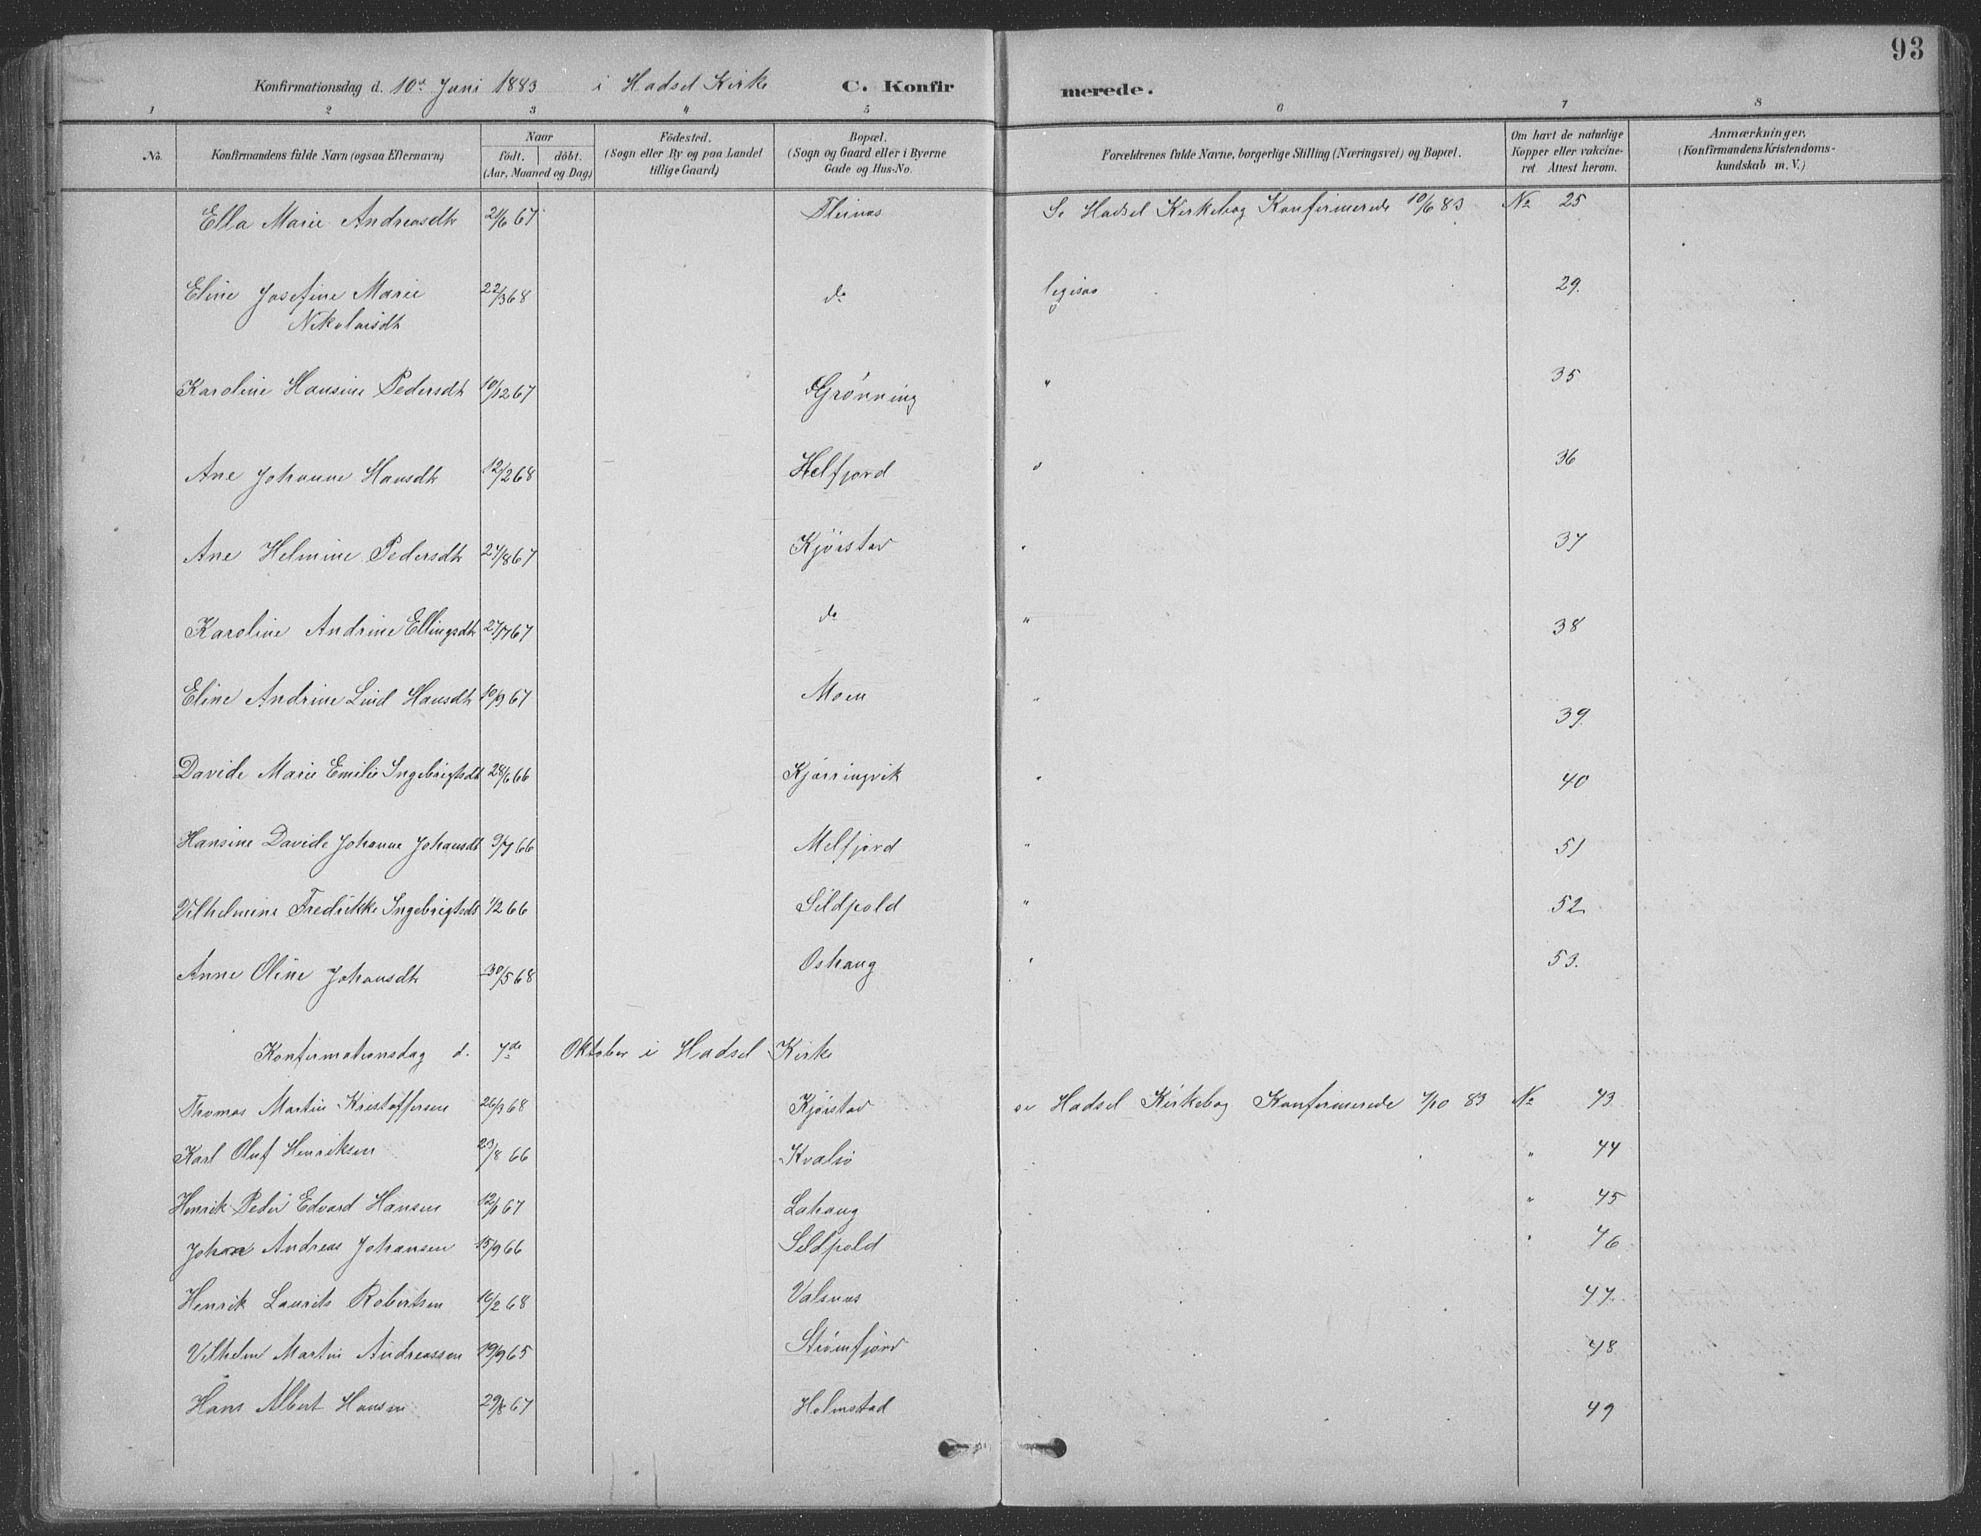 93
Konfirmationsdag d. 10de Juni 1883 i Hadsel Kirke C. Konfirmerede.
1 2 3 4 5 6 7 8
No. Konfirmandens fulde Navn (ogsaa Efternavn) Naar födt. döbt. (Aar, Maaned og Dag) Födested. (Sogn eller By og paa Landet tillige Gaard) Bopæl. (Sogn og Gaard eller i Byerne Gade og Hus-No. Forældrenes fulde Navne, borgerlige Stilling (Næringsvei) og Bopæl. Om havt de naturlige Kopper eller vakcineret. Attest herom. Anmærkninger. (Konfirmandens Kristendomskundskab m. V.)
Ella Marie Andreasdtr 21/6 67 Se Hadsel Kirkebog Konfirmerede 10/6 83 No 25
Eline Josefine Marie 22/3 68 do ligesaa 29.
Nikolaisdtr
Karoline Hansine Pedersdtr 10/12 67 Grönning " 35
Ane Johanne Hansdtr 12/2 68 Melfjord " 36
Ane Helmine Pedersdtr 27/8 67 Kjörstad " 37
Karoline Andrine Ellingsdtr 27/7 67 do " 38
Eline Andrine Lind Hansdtr 10/9 67 Moen " 39.
Davide Marie Emilie Ingebrigtsdtr 28/6 66 Kjørringvik " 40
Hansine Davide Johanne Johansdtr 9/7 66 Melfjord " 51
Vilhelmine Fredrikke Ingebrigtsdtr 1/2 66 Sildpold " 52
Anne Oline Johansdtr 30/5 68 Oshaug " 53.
Konfirmationsdag d. 7de Oktober i Hadsel Kirke
Thomas Martin Kristoffersen 26/3 68 Kjörstad se Hadsel Kirkebog Konfirmerede 7/10 83 No 43
Karl Oluf Henriksen 23/8 66 Kvalsö " 44
Henrik Peder Edvard Hansen 12/1 67 Lahaug " 45
Johan Andreas Johansen 15/9 66 Sildpold " 46
Henrik Laurits Robertsen 16/2 68 Valsnes 47.
Vilhelm Martin Andreassen 19/9 65 Strömfjord 48
Hans Albert Hansen 29/8 67 Holmstad 49